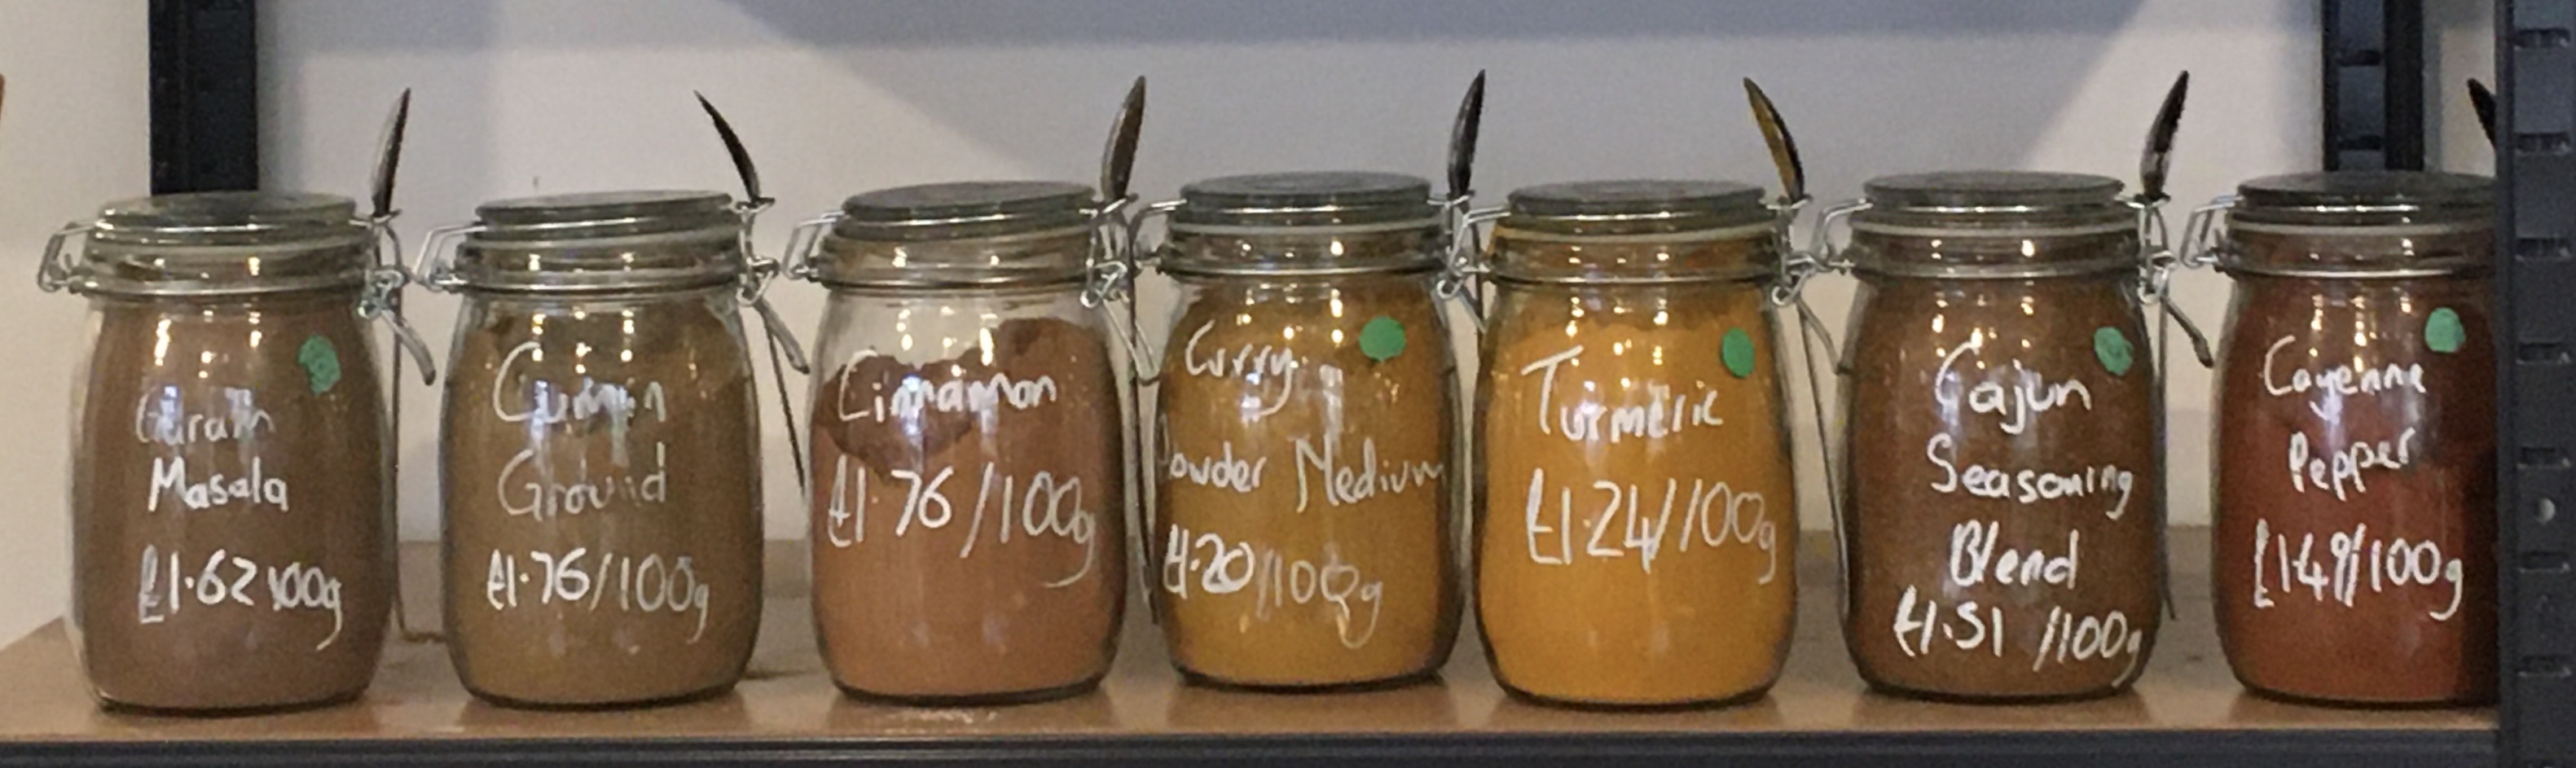 Garam
Masala
£1.62 100g
Cumin
Ground
£1.76/100g
Cinnamon
£1.76/100g
Curry
Powder Medium
£1.20/100g
Turmeric
£1.24/100g
Cajun
Seasoning
Blend
£1.51/100g
Cayenne
Pepper
£1.49/100g